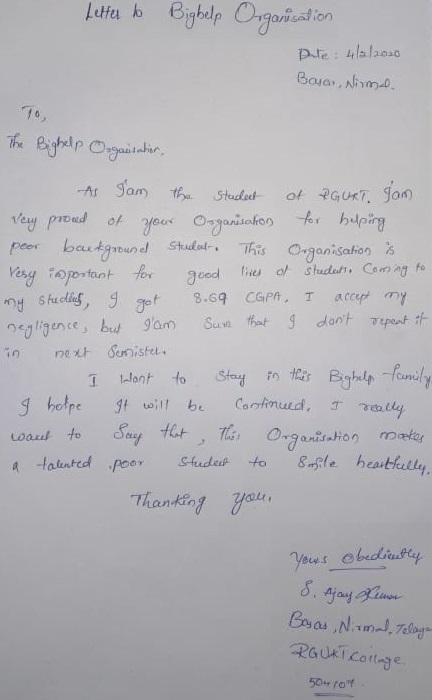 Letter to Bighelp Organisation
Date: 4/2/2020
Basar, Nirmal.
To,
The Bighelp Organisation,
As I'am the student of RGUKT. I'am
very proud of your Organisation for helping
poor background student. This Organisation is
Very important for good lives of student. Coming to
my studies, I got 8.69 CGPA. I accept my
negligence, but I'am sure that I don't repeat it
in next Semister.
I want to stay in this Bighelp family
I hotpe It will be Continued. I really
want to Say that, This Organisation makes
a talented poor student to Smile heartfully.
Thanking you.
Yours obediently
S. Ajay Kumar
Basar, Nirmal, Telaga
RGUKT Collage
504107.